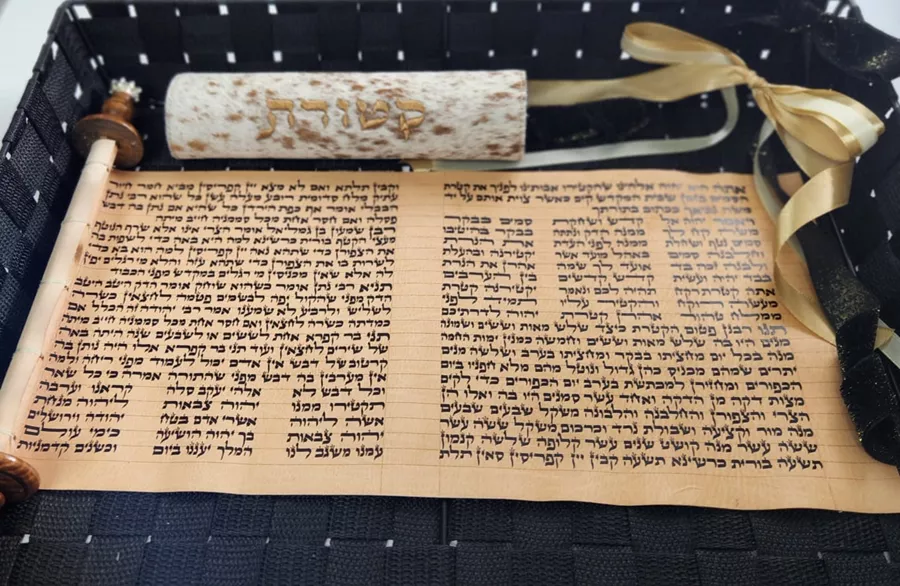 קטורת
אתה הוא יהוה אלהינו שהקטירו אבותינו לפניך את קטרת
הסמים בזמן שבית המקדש קים כאשר צוית אותם על יד
משה נביאך ככתוב בתורתך
הדק ושחקת סמים בבקר
סמים נטף ושחלת ממנה הדק ונתתה בבקר בהיטיבו
וחלבנה סמים ממנה לפני העדת את הנרת
ולבנה זכה בד באהל מועד אשר יקטירנה ובהעלת
בבד יהיה ועשית אועד לך שמה אהרן את הנרת
אתה קטרת רקח קדש קדשים בין הערבים
מעשה רוקח תהיה לכם ונאמר יקטירנה קטרת
ממלח טהור והקטיר עליו תמיד לפני
אהרן קטרת יהוה לדרתיכם
תנו רבנן פטום הקטרת כיצד שלש מאות וששים ושמונה
מנים היו בה שלש מאות וששים וחמשה כמנין ימות החמה
מנה בכל יום מחציתו בבקר ומחציתו בערב ושלשה מנים
יתרים שמהם מכניס כהן גדול ונוטל מהם מלא חפניו ביום
הכפורים ומחזירן למכתשת בערב יום הכפורים כדי לקים
מצות דקה מן הדקה ואחד עשר סמנים היו בה ואלו הן
הצרי והצפורן והחלבנה והלבונה משקל שבעים שבעים
מנה מור וקציעה ושבולת נרד וכרכום משקל ששה עשר
ששה עשר מנה קושט שנים עשר קלופה שלשה קנמון
תשעה בורית כרשינא תשעה קבין יין קפריסין סאין תלת
וקבין תלתא ואם לא מצא יין קפריסין מביא חמר חיור
עתיק מלח סדומית רובע מעלה עשן כל שהוא רבי נתן
הבבלי אומר אף כפת הירדן כל שהיא אם נתן בה דבש
פסלה ואם חסר אחת מכל סממניה חייב מיתה
רבן שמעון בן גמליאל אומר הצרי אינו אלא שרף הנוטף
מעצי הקטף בורית כרשינא למה היא באה כדי לשפות בה
את הצפורן כדי שתהא נאה יין קפריסין למה הוא בא כדי
לשרות בו את הצפורן כדי שתהא עזה והלא מי רגלים יפין
לה אלא שאין מכניסין מי רגלים במקדש מפני הכבוד
תניא רבי נתן אומר כשהוא שוחק אומר הדק היטב היטב
הדק מפני שהקול יפה לבשמים פטמה לחצאין כשרה
לשליש ולרביע לא שמענו אמר רבי יהודה זה הכלל אם
כמדתה כשרה לחצאין ואם חסר אחת מכל סממניה חייב מיתה
תני בר קפרא אחת לששים או לשבעים שנה היתה באה
של שירים לחצאין ועוד תני בר קפרא אלו היה נותן בה
קרטוב של דבש אין אדם יכול לעמוד מפני ריחה ולמה
אין מערבין בה דבש מפני שהתורה אמרה כי כל שאר
וכל דבש לא אלהי יעקב סלה הראנו וערבה
תקטירו ממנו יהוה צבאות ליהוה מנחת
אשה ליהוה אשרי אדם בטח יהודה וירושלים
יהוה צבאות בך יהוה הושיעה כימי עולם
עמנו משגב לנו המלך יעננו ביום וכשנים קדמניות